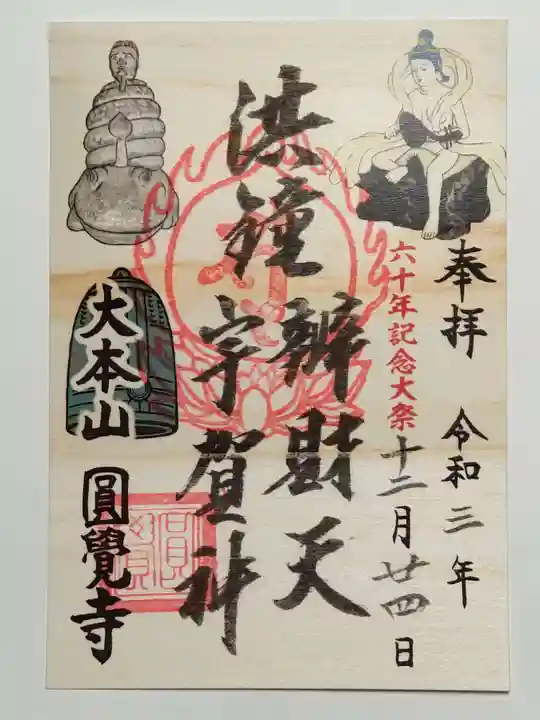 奉拝 令和三年
六十年記念大祭
十二月廿四日
洪鐘辨財天
宇賀神
大本山
圓覺寺
圓覺